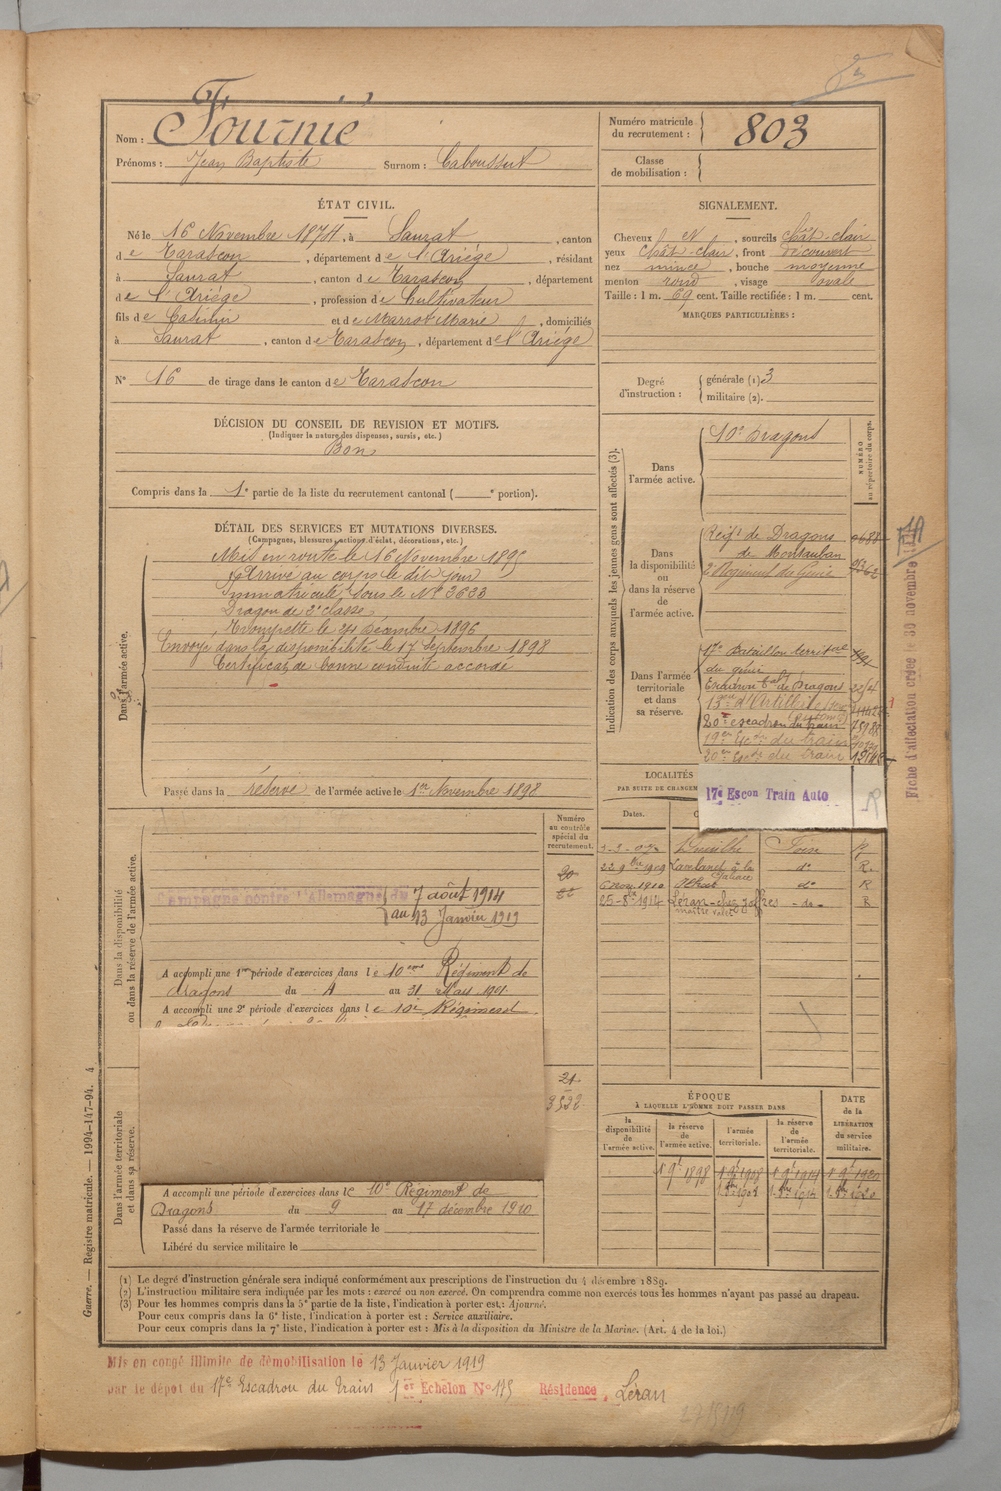 Nom : Fournié
Prénoms : Jean Baptiste Surnom : Caboussut
Numéro matricule du recrutement : 803
Classe de mobilisation :
ÉTAT CIVIL.
Né le 16 Novembre 1874, à Saurat, canton
de Tarascon, département de l'Ariège, résidant
à Saurat, canton de Tarascon, département
de l'Ariège, profession de Cultivateur
fils de Casimir et de Marrot Marie, domiciliés
à Saurat, canton de Tarascon, département de l'Ariège
N° 16 de tirage dans le canton de Tarascon
SIGNALEMENT.
Cheveux et, sourcils chât-clair
yeux chât-clair, front découvert
nez mince, bouche moyenne
menton rond, visage ovale
Taille : 1 m. 69 cent. Taille rectifiée : 1 m. cent.
MARQUES PARTICULIÈRES :
Degré d'instruction : générale (1) 3
militaire (2).
DÉCISION DU CONSEIL DE REVISION ET MOTIFS.
(Indiquer la nature des dispenses, sursis, etc.)
Bon
Compris dans la 1e partie de la liste du recrutement cantonal ( e portion).
DÉTAIL DES SERVICES ET MUTATIONS DIVERSES.
(Campagnes, blessures, actions d'éclat, décorations, etc.)
Dans l'armée active.
Mis en route le 16 Novembre 1895
Arrivé au corps le dit jour
Immatriculé sous le N° 3633
Dragon de 2e classe
Trompette le 24 Décembre 1896
Envoyé dans la disponibilité le 17 Septembre 1898
Certificat de bonne conduite accordé
Passé dans la réserve de l'armée active le 1er Novembre 1898
Indication des corps auxquels les jeunes gens sont affectés (3).
NUMÉRO au répertoire du corps.
Dans l'armée active.
10e Dragons
Dans la disponibilité ou dans la réserve de l'armée active.
Régt de Dragons
de Montauban
2e Régiment du Génie
Dans l'armée territoriale et dans sa réserve.
17e Bataillon territ
du génie
Escadron tal de Dragons
20e escadron du train
19e Esc du train
20e Esc du train
17e Escon Train Auto
R
Fiche d'affectation créée le 30 novembre
LOCALITÉS
PAR SUITE DE CHANGEM
Dates.
R
22 9bre 1909 do R.
6 nov. 1910 do R
25-8-1914 Léran -do- R
Dans la disponibilité ou dans la réserve de l'armée active.
Numéro au contrôle spécial du recrutement.
Campagne contre l'Allemagne du 7 août 1914
au 13 Janvier 1919
A accompli une 1re période d'exercices dans le 10eme Régiment de
dragons du 4 au 31 Mars 1901
A accompli une 2e période d'exercices dans le 10e Régiment
21
3532
Dans l'armée territoriale et dans sa réserve.
A accompli une période d'exercices dans le 10e Régiment de
Dragons du 9 au 17 décembre 1910
Passé dans la réserve de l'armée territoriale le
Libéré du service militaire le
ÉPOQUE
À LAQUELLE L'HOMME DOIT PASSER DANS
DATE de la LIBÉRATION du service militaire.
la disponibilité de l'armée active.
la réserve de l'armée active.
l'armée territoriale.
la réserve de l'armée territoriale.
(1) Le degré d'instruction générale sera indiqué conformément aux prescriptions de l'instruction du 4 décembre 1889.
(2) L'instruction militaire sera indiquée par les mots : exercé ou non exercé. On comprendra comme non exercés tous les hommes n'ayant pas passé au drapeau.
(3) Pour les hommes compris dans la 5e partie de la liste, l'indication à porter est : Ajourné.
Pour ceux compris dans la 6e liste, l'indication à porter est : Service auxiliaire.
Pour ceux compris dans la 7e liste, l'indication à porter est : Mis à la disposition du Ministre de la Marine. (Art. 4 de la loi.)
Guerre. — Registre matricule. — 1994-147-94. 4
Mis en congé illimité de démobilisation le 13 Janvier 1919
par le dépôt du 17e Escadron du Train 1er Echelon N° 115 Résidence, Léran